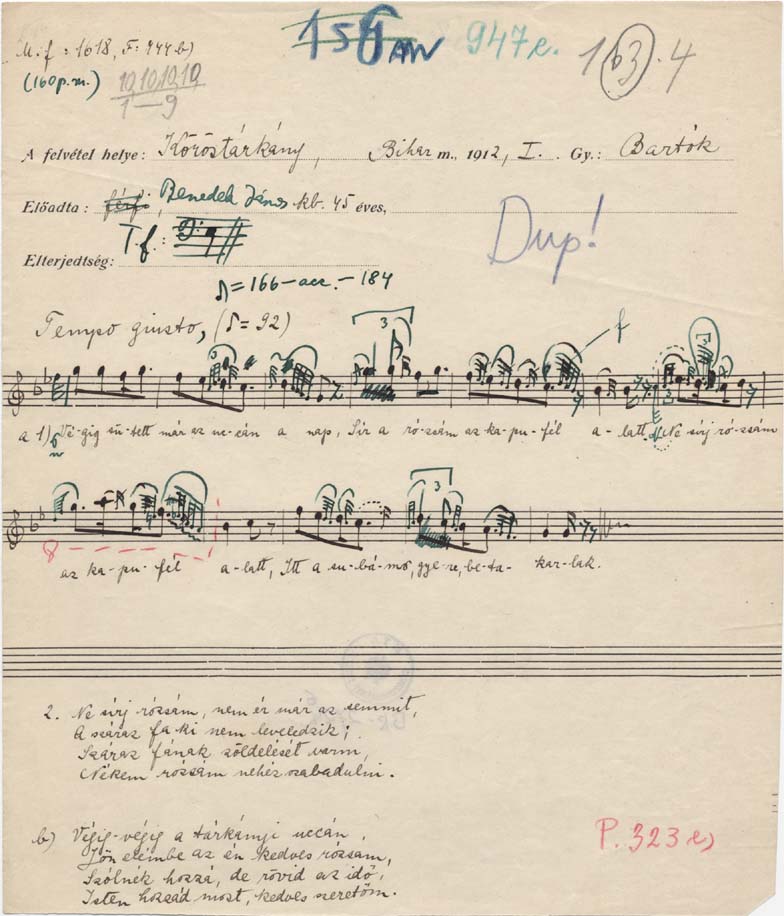 M.f.: 1618, F: 444 b)
(160 p.m.)
10,10,10,10,
1—9
947 e.
163.4
A felvétel helye: Köröstárkány, Bihar m., 1912, I. Gy.: Bartók
Előadta: férfi, Benedek János kb. 45 éves,
T.f.:
Dup!
Elterjedtség:
♪=166-acc.-184
Tempo giusto, (♪=92)
3
f
3
a 1) Vé-gig sü-tett már az uc-cán a nap, Sír a ró-zsám az ka-pu-fél a-latt. Ne sírj ró-zsám
3
8
az ka-pu-fél a-latt, Itt a su-bá-mo, gye-re, be-ta-kar-lak.
2. Ne sírj rózsám, nem ér már az semmit,
A száraz fa ki nem leveledzik;
Száraz fának zöldelését varni,
Nékem rózsám nehéz szabadulni.
b) Végig-végig a tárkányi uccán,
Jön elémbe az én kedves rózsám,
Szólnék hozzá, de rövid az idő,
Isten hozzád most, kedves szeretőm.
P. 323 e)